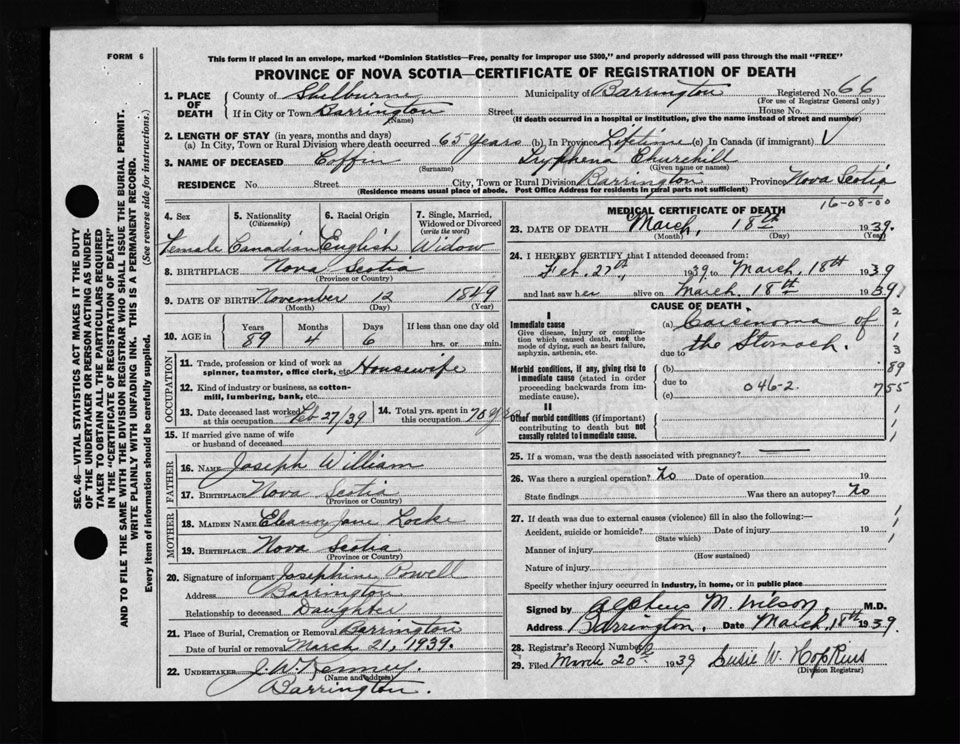 FORM 6
This form if placed in an envelope, marked "Dominion Statistics—Free, penalty for improper use $300," and properly addressed will pass through the mail "FREE"
PROVINCE OF NOVA SCOTIA—CERTIFICATE OF REGISTRATION OF DEATH
SEC. 46—VITAL STATISTICS ACT MAKES IT THE DUTY
OF THE UNDERTAKER OR PERSON ACTING AS UNDER-
TAKER TO OBTAIN ALL THE PARTICULARS REQUIRED
IN THE "CERTIFICATE OF REGISTRATION OF DEATH"
AND TO FILE THE SAME WITH THE DIVISION REGISTRAR WHO SHALL ISSUE THE BURIAL PERMIT.
WRITE PLAINLY WITH UNFADING INK. THIS IS A PERMANENT RECORD.
Every item of information should be carefully supplied. (See reverse side for instructions.)
1. PLACE OF DEATH
County of Shelburne Municipality of Barrington Registered No. 66
(For use of Registrar General only)
If in City or Town Barrington Street House No.
(Name) (If death occurred in a hospital or institution, give the name instead of street and number)
2. LENGTH OF STAY (in years, months and days)
(a) In City, Town or Rural Division where death occurred 65 years (b) In Province Lifetime (c) In Canada (if immigrant) √
3. NAME OF DECEASED Coffin Tryphena Churchill
(Surname) (Given name or names)
RESIDENCE No. Street City, Town or Rural Division Barrington Province Nova Scotia
(Residence means usual place of abode. Post Office Address for residents in rural parts not sufficient)
4. Sex
Female
5. Nationality
(Citizenship)
Canadian
6. Racial Origin
English
7. Single, Married, Widowed or Divorced
(write the word)
Widow
8. BIRTHPLACE Nova Scotia
(Province or Country)
9. DATE OF BIRTH November 12 1849
(Month) (Day) (Year)
10. AGE in Years Months Days If less than one day old
89 4 6 hrs. or min.
OCCUPATION
11. Trade, profession or kind of work as
spinner, teamster, office clerk, etc. Housewife
12. Kind of industry or business, as cotton-
mill, lumbering, bank, etc.
13. Date deceased last worked
at this occupation Feb 27/39
14. Total yrs. spent in
this occupation 70 yrs
15. If married give name of wife
or husband of deceased
FATHER
16. NAME Joseph William
17. BIRTHPLACE Nova Scotia
(Province or Country)
MOTHER
18. MAIDEN NAME Eleanor Jane Locke
19. BIRTHPLACE Nova Scotia
(Province or Country)
20. Signature of informant Josephine Powell
Address Barrington
Relationship to deceased Daughter
21. Place of Burial, Cremation or Removal Barrington
Date of burial or removal March 21, 1939.
22. UNDERTAKER J. W. Kenney.
(Name and address)
Barrington.
MEDICAL CERTIFICATE OF DEATH
16-08-00
23. DATE OF DEATH March, 18th 1939.
(Month) (Day) (Year)
24. I HEREBY CERTIFY that I attended deceased from:
Feb. 27th, 1939 to March, 18th 1939
and last saw her alive on March. 18th 1939
CAUSE OF DEATH
I
Immediate cause
Give disease, injury or complica-
tion which caused death, not the
mode of dying, such as heart failure,
asphyxia, asthenia, etc.
(a) Carcinoma of
the Stomach.
due to
Morbid conditions, if any, giving rise to
immediate cause (stated in order
proceeding backwards from im-
mediate cause).
(b)
due to 046-2
(c)
II
Other morbid conditions (if important)
contributing to death but not
causally related to immediate cause.
1
2
1
1
3
89
755
25. If a woman, was the death associated with pregnancy?
26. Was there a surgical operation? No Date of operation 19
State findings Was there an autopsy? No
27. If death was due to external causes (violence) fill in also the following:—
Accident, suicide or homicide? Date of injury 19
(State which)
Manner of injury
(How sustained)
Nature of injury
Specify whether injury occurred in industry, in home, or in public place
Signed by Alpheus M. Wilson, M.D.
Address Barrington. Date March, 18th 1939.
28. Registrar's Record Number
29. Filed March 20th 1939 Susie W. Hopkins
(Division Registrar)